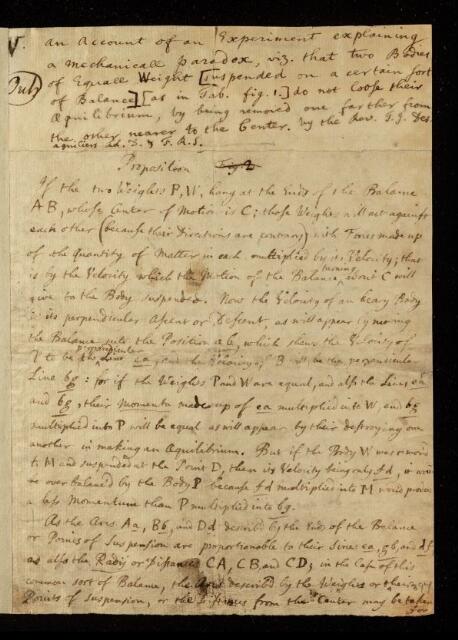 V. an Account of an Experiment explaining
a mechanicall paradox, viz. that two Bodies
of Equall Weight [suspended on a certain sort
of Balance] [as in Tab. fig. 1.] do not loose their
Æquilibrium, by being removed one farther from
the other nearer to the Center. by the Rev. J. J. Des-
aguliers F. R. S.
Proposition Fig 2
If the two Weights P, W, hang at the Ends of the Balance
AB, whose Center of Motion is C; those Weights will act against
each other (because their Directions are contrary) with Forces made up
of the Quantity of Matter in each multiplied by its Velocity; that
is by the Velocity which the Motion of the Balance turning about C will
give to the Body suspended. Now the Velocity of an heavy Body
is its perpendicular Ascent or Descent, as will appear by moving
the Balance into the Position ab, which shews the Velocity of
P to be the perpendicular Line ea, and the Velocity of B will be the perpendicular
Line bg: for if the Weights P and W are equal, and also the Lines ea
and bg, their Momenta made up of ea multiplied into W, and bg
multiplied into P will be equal as will appear by their destroying one
another in making an Æquilibrium. But if the Body W was removed
to M and suspended at the Point D, then its Velocity being only fd, it would
be over balanced by the Body P because fd multiplied into M would produce
a less Momentum than P multiplied into bg.
As the Arcs Aa, Bb, and Dd described by the Ends of the Balance
or Points of Suspension are proportionable to their Sines ea, gb, and df
as also the Radij or Distances CA, CB and CD; in the Case of this
common sort of Balance, the Arcs described by the Weights or their
Points of suspension, or the Distances from the Center may be taken
for